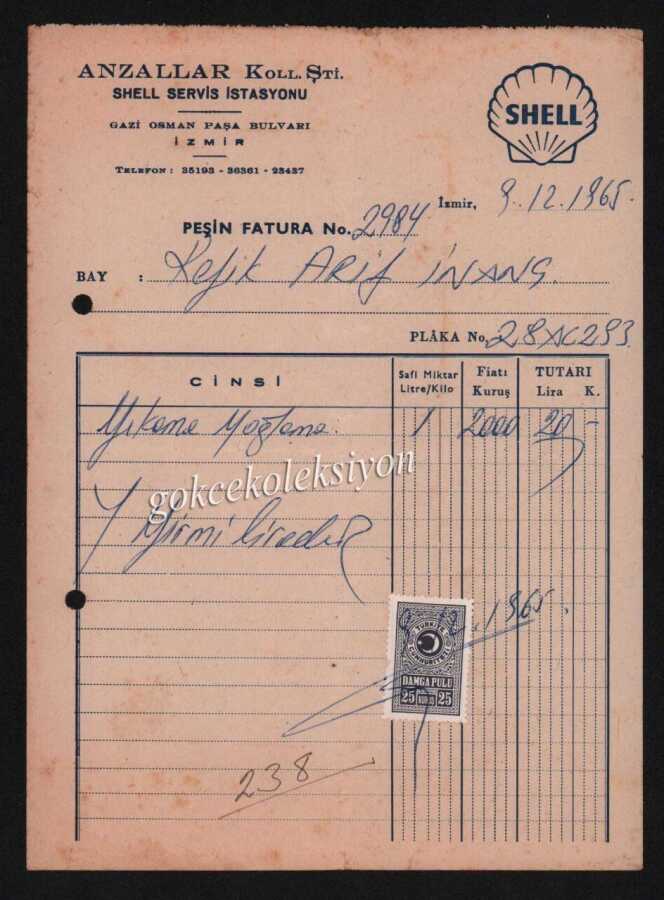 ANZALLAR KOLL. ŞTİ.
SHELL SERVİS İSTASYONU
GAZİ OSMAN PAŞA BULVARI
İZMİR
TELEFON : 35193 - 36361 - 23437
SHELL
İzmir, 9.12.1965.
PEŞİN FATURA No. 2984
BAY : Refik ARİf İNANÇ.
PLÂKA No. 28 AC 293
CİNSİ
Safi Miktar Litre/Kilo
Fiatı Kuruş
TUTARI Lira K.
Yıkama Yağlama. 1 2000 20 -
gokcekoleksiyon
Yirmi liradır
9.12.1965.
TÜRKİYE CUMHURİYETİ
DAMGA PULU
25 KURUŞ 25
238